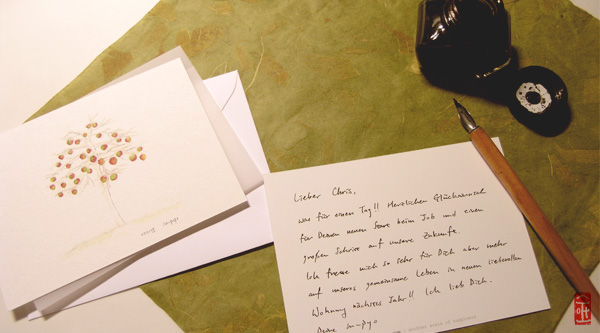 Lieber Chris,
was für einen Tag!! Herzlichen Glückwunsch
für Deinen neuen Start beim Job und einen
großen Schritt auf unsere Zukunft.
Ich freue mich so sehr für Dich aber mehr
auf unseres gemeinsame Leben in neuen liebevollen
Wohnung nächstes Jahr!! Ich lieb Dich.
Deine Su-pyo